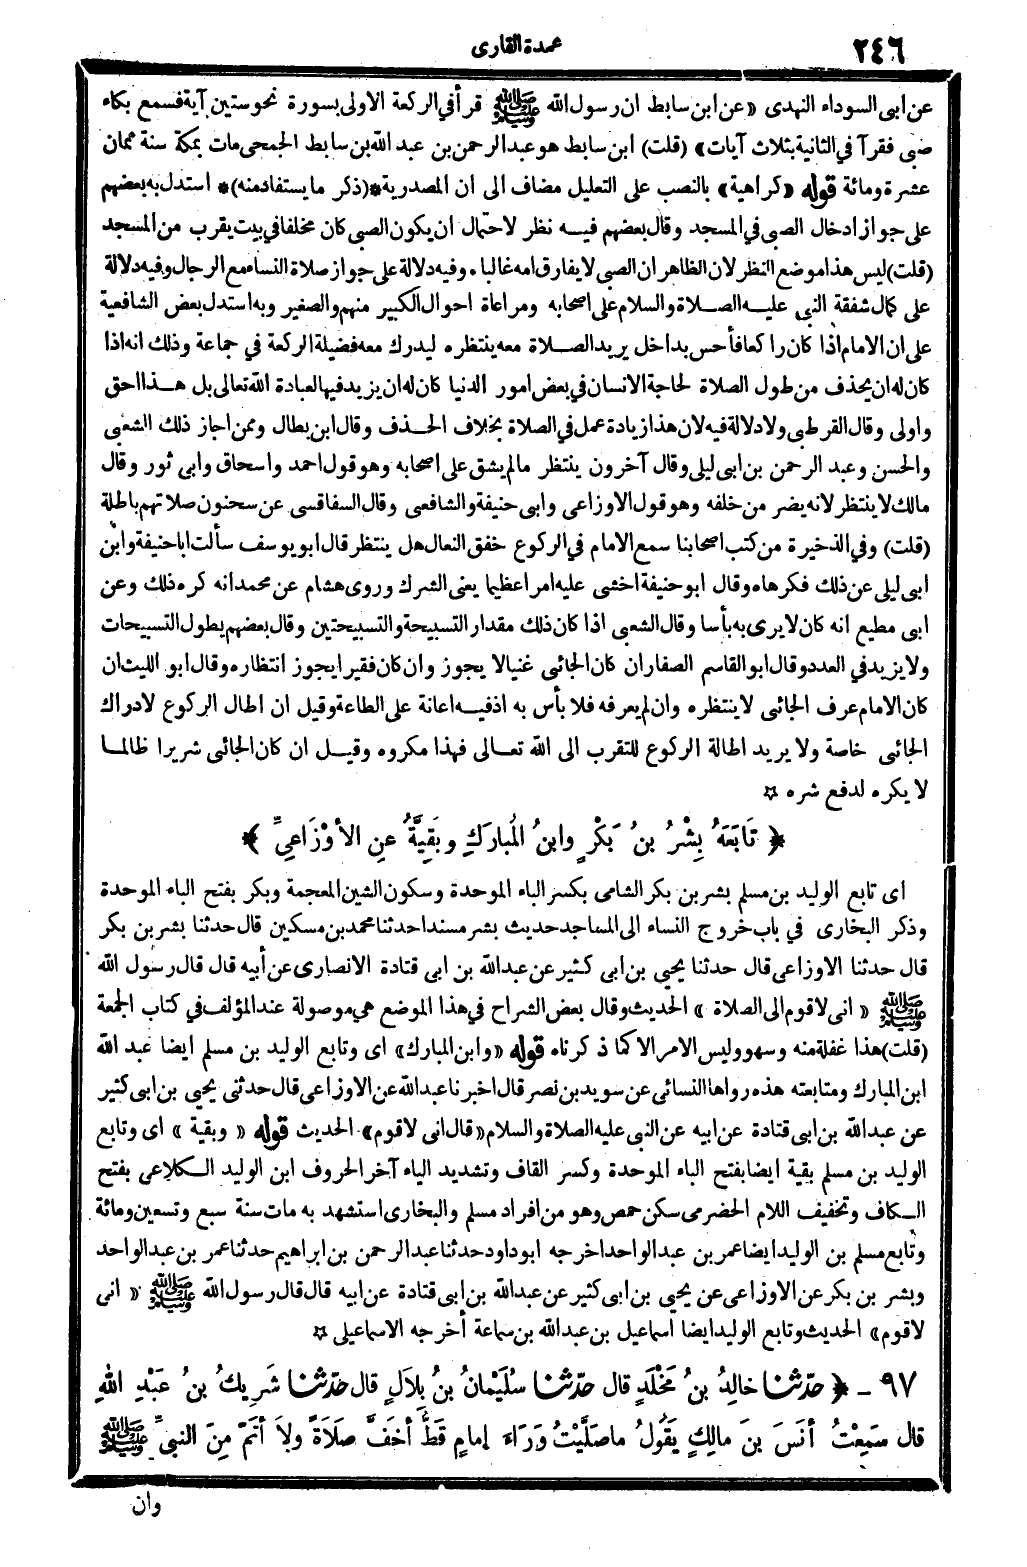 ٢٤٦
عمدة القارى
عن ابى السوداء النهدى «عن ابن سابط ان رسول الله ﷺ قرأ في الركعة الاولى بسورة نحو ستين آية فسمع بكاء
صبى فقرآ في الثانية بثلاث آيات» (قلت) ابن سابط هو عبد الرحمن بن عبد الله بن سابط الجمحى مات بمكة سنة ثمان
عشرة ومائة قوله «كراهية» بالنصب على التعليل مضاف الى ان المصدرية *(ذكر ما يستفاد منه)* استدل به بعضهم
على جواز ادخال الصبى في المسجد وقال بعضهم فيه نظر لاحتمال ان يكون الصبى كان مخلفا في بيت يقرب من المسجد
(قلت) ليس هذا موضع النظر لان الظاهر ان الصبى لا يفارق امه غالبا . وفيه دلالة على جواز صلاة النساء مع الرجال وفيه دلالة
على كمال شفقة النبى عليه الصلاة والسلام على اصحابه ومراعاة احوال الكبير منهم والصغير وبه استدل بعض الشافعية
على ان الامام اذا كان راكعا فأحس بداخل يريد الصلاة معه ينتظره ليدرك معه فضيلة الركعة في جماعة وذلك انه اذا
كان له ان يحذف من طول الصلاة لحاجة الانسان في بعض امور الدنيا كان له ان يزيد فيها لعبادة الله تعالى بل هذا احق
واولى وقال القرطبى ولا دلالة فيه لان هذا زيادة عمل في الصلاة بخلاف الحذف وقال ابن بطال وممن اجاز ذلك الشعبى
والحسن وعبد الرحمن بن ابى ليلى وقال آخرون ينتظر مالم يشق على اصحابه وهو قول احمد واسحاق وابى ثور وقال
مالك لا ينتظر لانه يضر من خلفه وهو قول الاوزاعى وابى حنيفة والشافعى وقال السفاقسى عن سحنون صلاتهم باطلة
(قلت) وفي الذخيرة من كتب اصحابنا سمع الامام في الركوع خفق النعال هل ينتظر قال ابو يوسف سألت ابا حنيفة وابن
ابى ليلى عن ذلك فكرهاه وقال ابو حنيفة اخشى عليه امرا عظيما يعنى الشرك وروى هشام عن محمد انه كره ذلك وعن
ابى مطيع انه كان لا يرى به بأسا وقال الشعبى اذا كان ذلك مقدار التسبيحة والتسبيحتين وقال بعضهم يطول التسبيحات
ولا يزيد في العدد وقال ابو القاسم الصفار ان كان الجائى غنيا لا يجوز وان كان فقيرا يجوز انتظاره وقال ابو الليث ان
كان الامام عرف الجائى لا ينتظره وان لم يعرفه فلا بأس به اذ فيه اعانة على الطاعة وقيل ان اطال الركوع لادراك
الجائى خاصة ولا يريد اطالة الركوع للتقرب الى الله تعالى فهذا مكروه وقيل ان كان الجائى شريرا ظالما
لا يكره لدفع شره ✡
﴿ تَابَعَهُ بِشْرُ بنُ بَكْرٍ وابنُ المُبارَكِ وبَقِيَّةُ عنِ الأوْزَاعِيِّ ﴾
اى تابع الوليد بن مسلم بشر بن بكر الشامى بكسر الباء الموحدة وسكون الشين المعجمة وبكر بفتح الباء الموحدة
وذكر البخارى في باب خروج النساء الى المساجد حديث بشر مسندا حدثنا محمد بن مسكين قال حدثنا بشر بن بكر
قال حدثنا الاوزاعى قال حدثنا يحيى بن ابى كثير عن عبد الله بن ابى قتادة الانصارى عن أبيه قال قال رسول الله
ﷺ «انى لاقوم الى الصلاة» الحديث وقال بعض الشراح في هذا الموضع هي موصولة عند المؤلف في كتاب الجمعة
(قلت) هذا غفلة منه وسهو وليس الامر الا كما ذكرناه قوله «وابن المبارك» اى وتابع الوليد بن مسلم ايضا عبد الله
ابن المبارك ومتابعته هذه رواها النسائى عن سويد بن نصر قال اخبرنا عبد الله عن الاوزاعى قال حدثنى يحيى بن ابى كثير
عن عبد الله بن ابى قتادة عن ابيه عن النبى عليه الصلاة والسلام «قال انى لاقوم» الحديث قوله «وبقية» اى وتابع
الوليد بن مسلم بقية ايضا بفتح الباء الموحدة وكسر القاف وتشديد الياء آخر الحروف ابن الوليد الكلاعى بفتح
الكاف وتخفيف اللام الحضرمى سكن حمص وهو من افراد مسلم والبخارى استشهد به مات سنة سبع وتسعين ومائة
وتابع مسلم بن الوليد ايضا عمر بن عبد الواحد اخرجه ابو داود حدثنا عبد الرحمن بن ابراهيم حدثنا عمر بن عبد الواحد
وبشر بن بكر عن الاوزاعى عن يحيى بن ابى كثير عن عبد الله بن ابى قتادة عن ابيه قال قال رسول الله ﷺ «انى
لاقوم» الحديث وتابع الوليد ايضا اسماعيل بن عبد الله بن سماعة أخرجه الاسماعيلى ✡
٩٧ ـ ﴿ حَدَّثَنَا خالِدُ بنُ مَخْلَدٍ قال حَدَّثَنَا سُلَيْمانُ بنُ بِلاَلٍ قال حَدَّثَنَا شَرِيكُ بنُ عَبْدِ اللهِ
قال سَمِعْتُ أنَسَ بنَ مالِكٍ يَقُولُ ماصَلَّيْتُ وَرَاءَ إمامٍ قَطُّ أخَفَّ صَلاَةً ولاَ أتَمَّ مِنَ النبيِّ ﷺ
وان